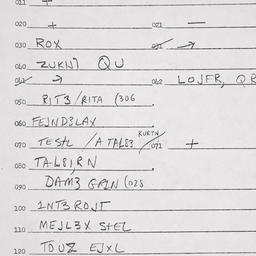 011 +
020 + 021 —
030 ROX 031 →
040 ZUKNT QU
041 → 042 LOJFR, QR
050 RIT3/RITA (306
060 FEJND3LAX
KURTN
070 TESTL /A TAL83 /071 +
080 TAL81RN
090 DAM3 GRIN (028
100 1NT3ROJT
110 MEJL3X STEL
120 TOUZ EJXL